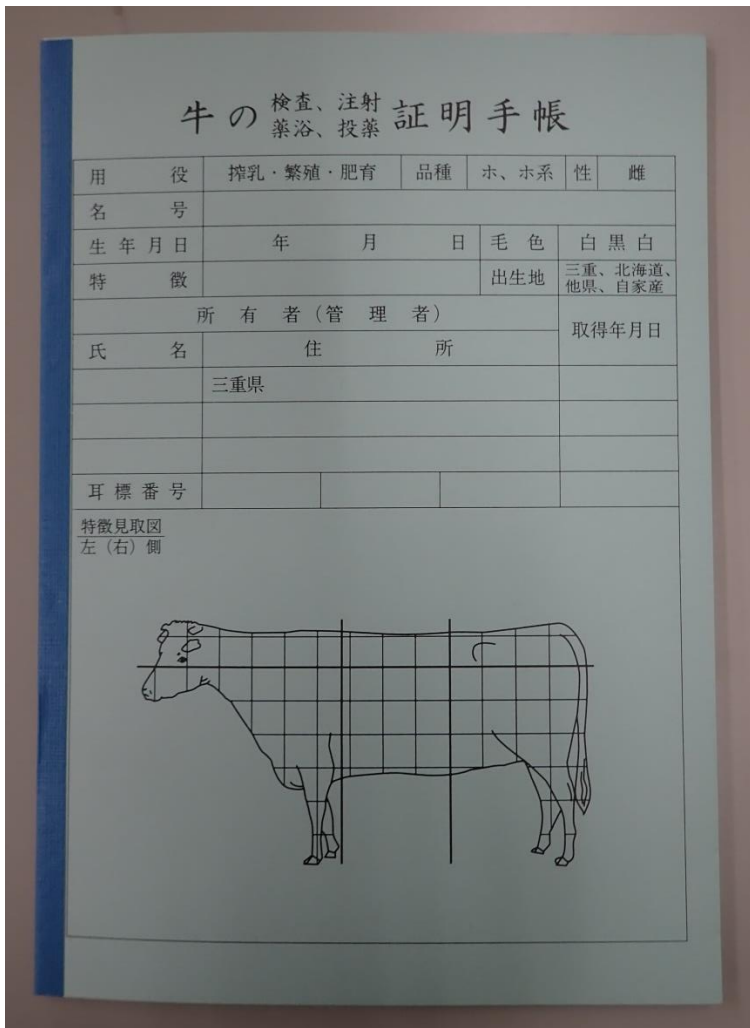 牛の検査、注射薬浴、投薬証明手帳
用役 搾乳・繁殖・肥育 品種 ホ、ホ系 性 雌
名号
生年月日 年 月 日 毛色 白黒白
特徴 出生地 三重、北海道、他県、自家産
所有者（管理者） 取得年月日
氏名 住所
三重県
耳標番号
特徴見取図
左（右）側